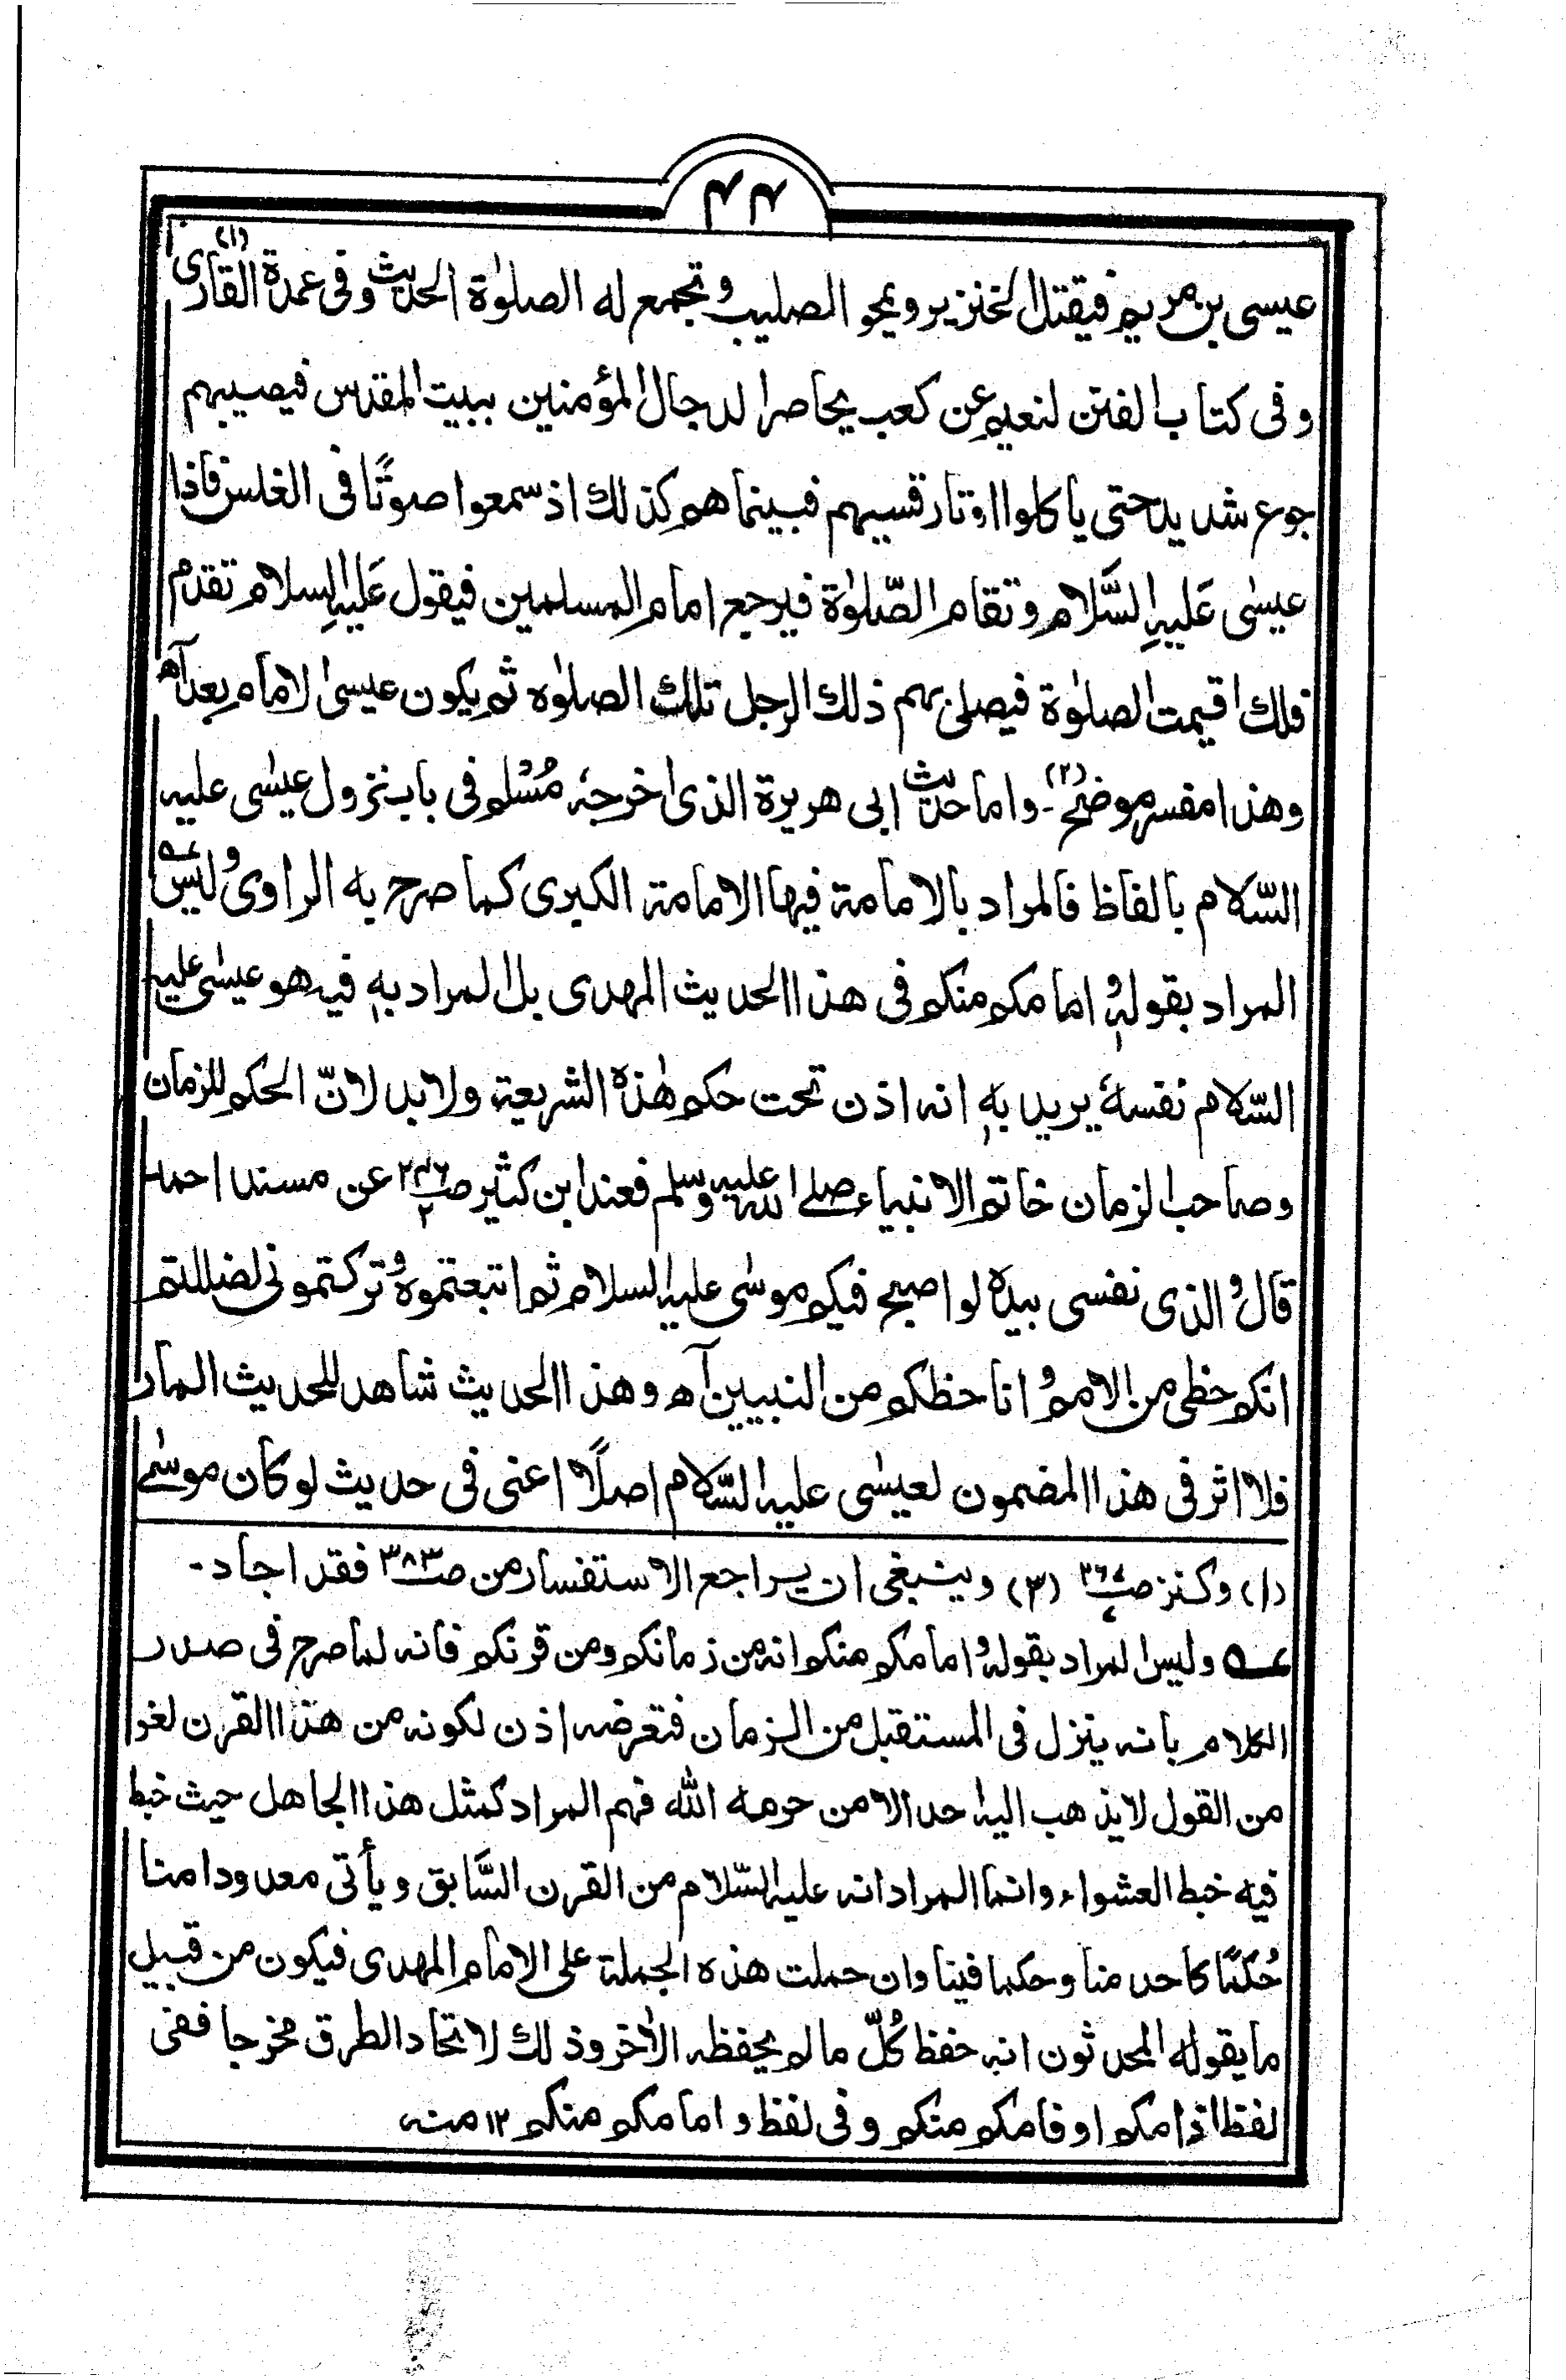 ۴۴
عيسى بن مريم فيقتل الخنزير ويمحو الصليب وتجمع له الصلوٰة الحديث وفى عمدة القارى (١)
وفى كتاب الفتن لنعيم عن كعب يحاصر الدجال المؤمنين ببيت المقدس فيصيبهم
جوع شديد حتى ياكلوا اوتار قسيهم فبينما هم كذلك اذ سمعوا صوتًا فى الغلس فاذا
عيسٰى عَليهِ السَّلام وتقام الصّلوٰة فيرجع امام المسلمين فيقول عَليهِ السلام تقدم
فلك اقيمت الصلوٰة فيصلى بهم ذلك الرجل تلك الصلوٰه ثم يكون عيسىٰ الامام بعد آه
وهذا مفسر موضح (٢)۔ واما حديث ابى هريرة الذى اخرجهٗ مُسْلم فى باب نزول عيسٰى عليه
السّلام بالفاظ فالمراد بالامامة فيها الامامة الكبرى كما صرح به الراوى وليس عه
المراد بقولهٖ وامامكم منكم فى هذا الحديث المهدى بل المراد بهٖ فيه هو عيسٰى عليه
السّلام نفسهٗ يريد بهٖ انه اذن تحت حكم هٰذه الشريعة ولابد لانّ الحكم للزمان
وصاحب الزمان خاتم الانبياء صلے الله عليه وسلم فعند ابن كثير صـ ٢٤٦/٢ عن مسند احمد
قال والذى نفسى بيده لو اصبح فيكم موسٰى عليه السلام ثم اتبعتموه وتركتمونى لضللتم
انكم حظى من الامم وانا حظكم من النبيين آه وهذا الحديث شاهد للحديث المار
فلا اثر فى هذا المضمون لعيسٰى عليه السّلام اصلًا اعنى فى حديث لو كان موسٰے
(١) وكنز صـ ٢٦٧/٧ (٣) وينبغى ان يراجع الاستفسار من صـ ٣٨٣ فقد اجاد۔
عه وليس المراد بقولهٖ وامامكم منكم انه من زمانكم ومن قرنكم فانه لما صرح فى صدر
الكلام بانه ينزل فى المستقبل من الزمان فتعرضه اذن لكونه من هذا القرن لغو
من القول لا يذهب اليه احد الا من حرمه الله فهم المراد كمثل هذا الجاهل حيث خبط
فيه خبط العشواء وانما المراد انه عليه السّلام من القرن السَّابق ويأتى معدودا منا
حُكمًا كاحد منا وحكما فينا وان حملت هذه الجملة على الامام المهدى فيكون من قبيل
ما يقوله المحدثون انه حفظ كُلّ ما لم يحفظه الاٰخر وذلك لاتحاد الطرق مخرجا ففى
لفظ اذا مكم او فامكم منكم وفى لفظ وامامكم منكم ١٢ منه